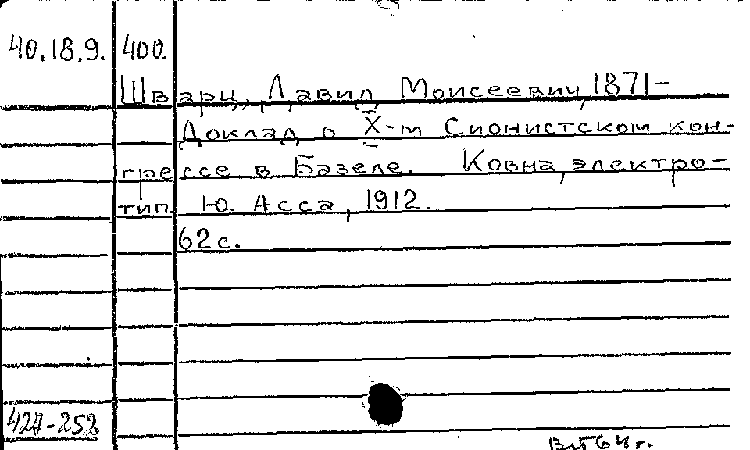 40.18.9. 400.
Шварц, Давид Моисеевич, 1871-
Доклад о X-м Сионистском кон-
грессе в Базеле. Ковна, электро-
тип. Ю. Асса, 1912.
62 с.
424-252